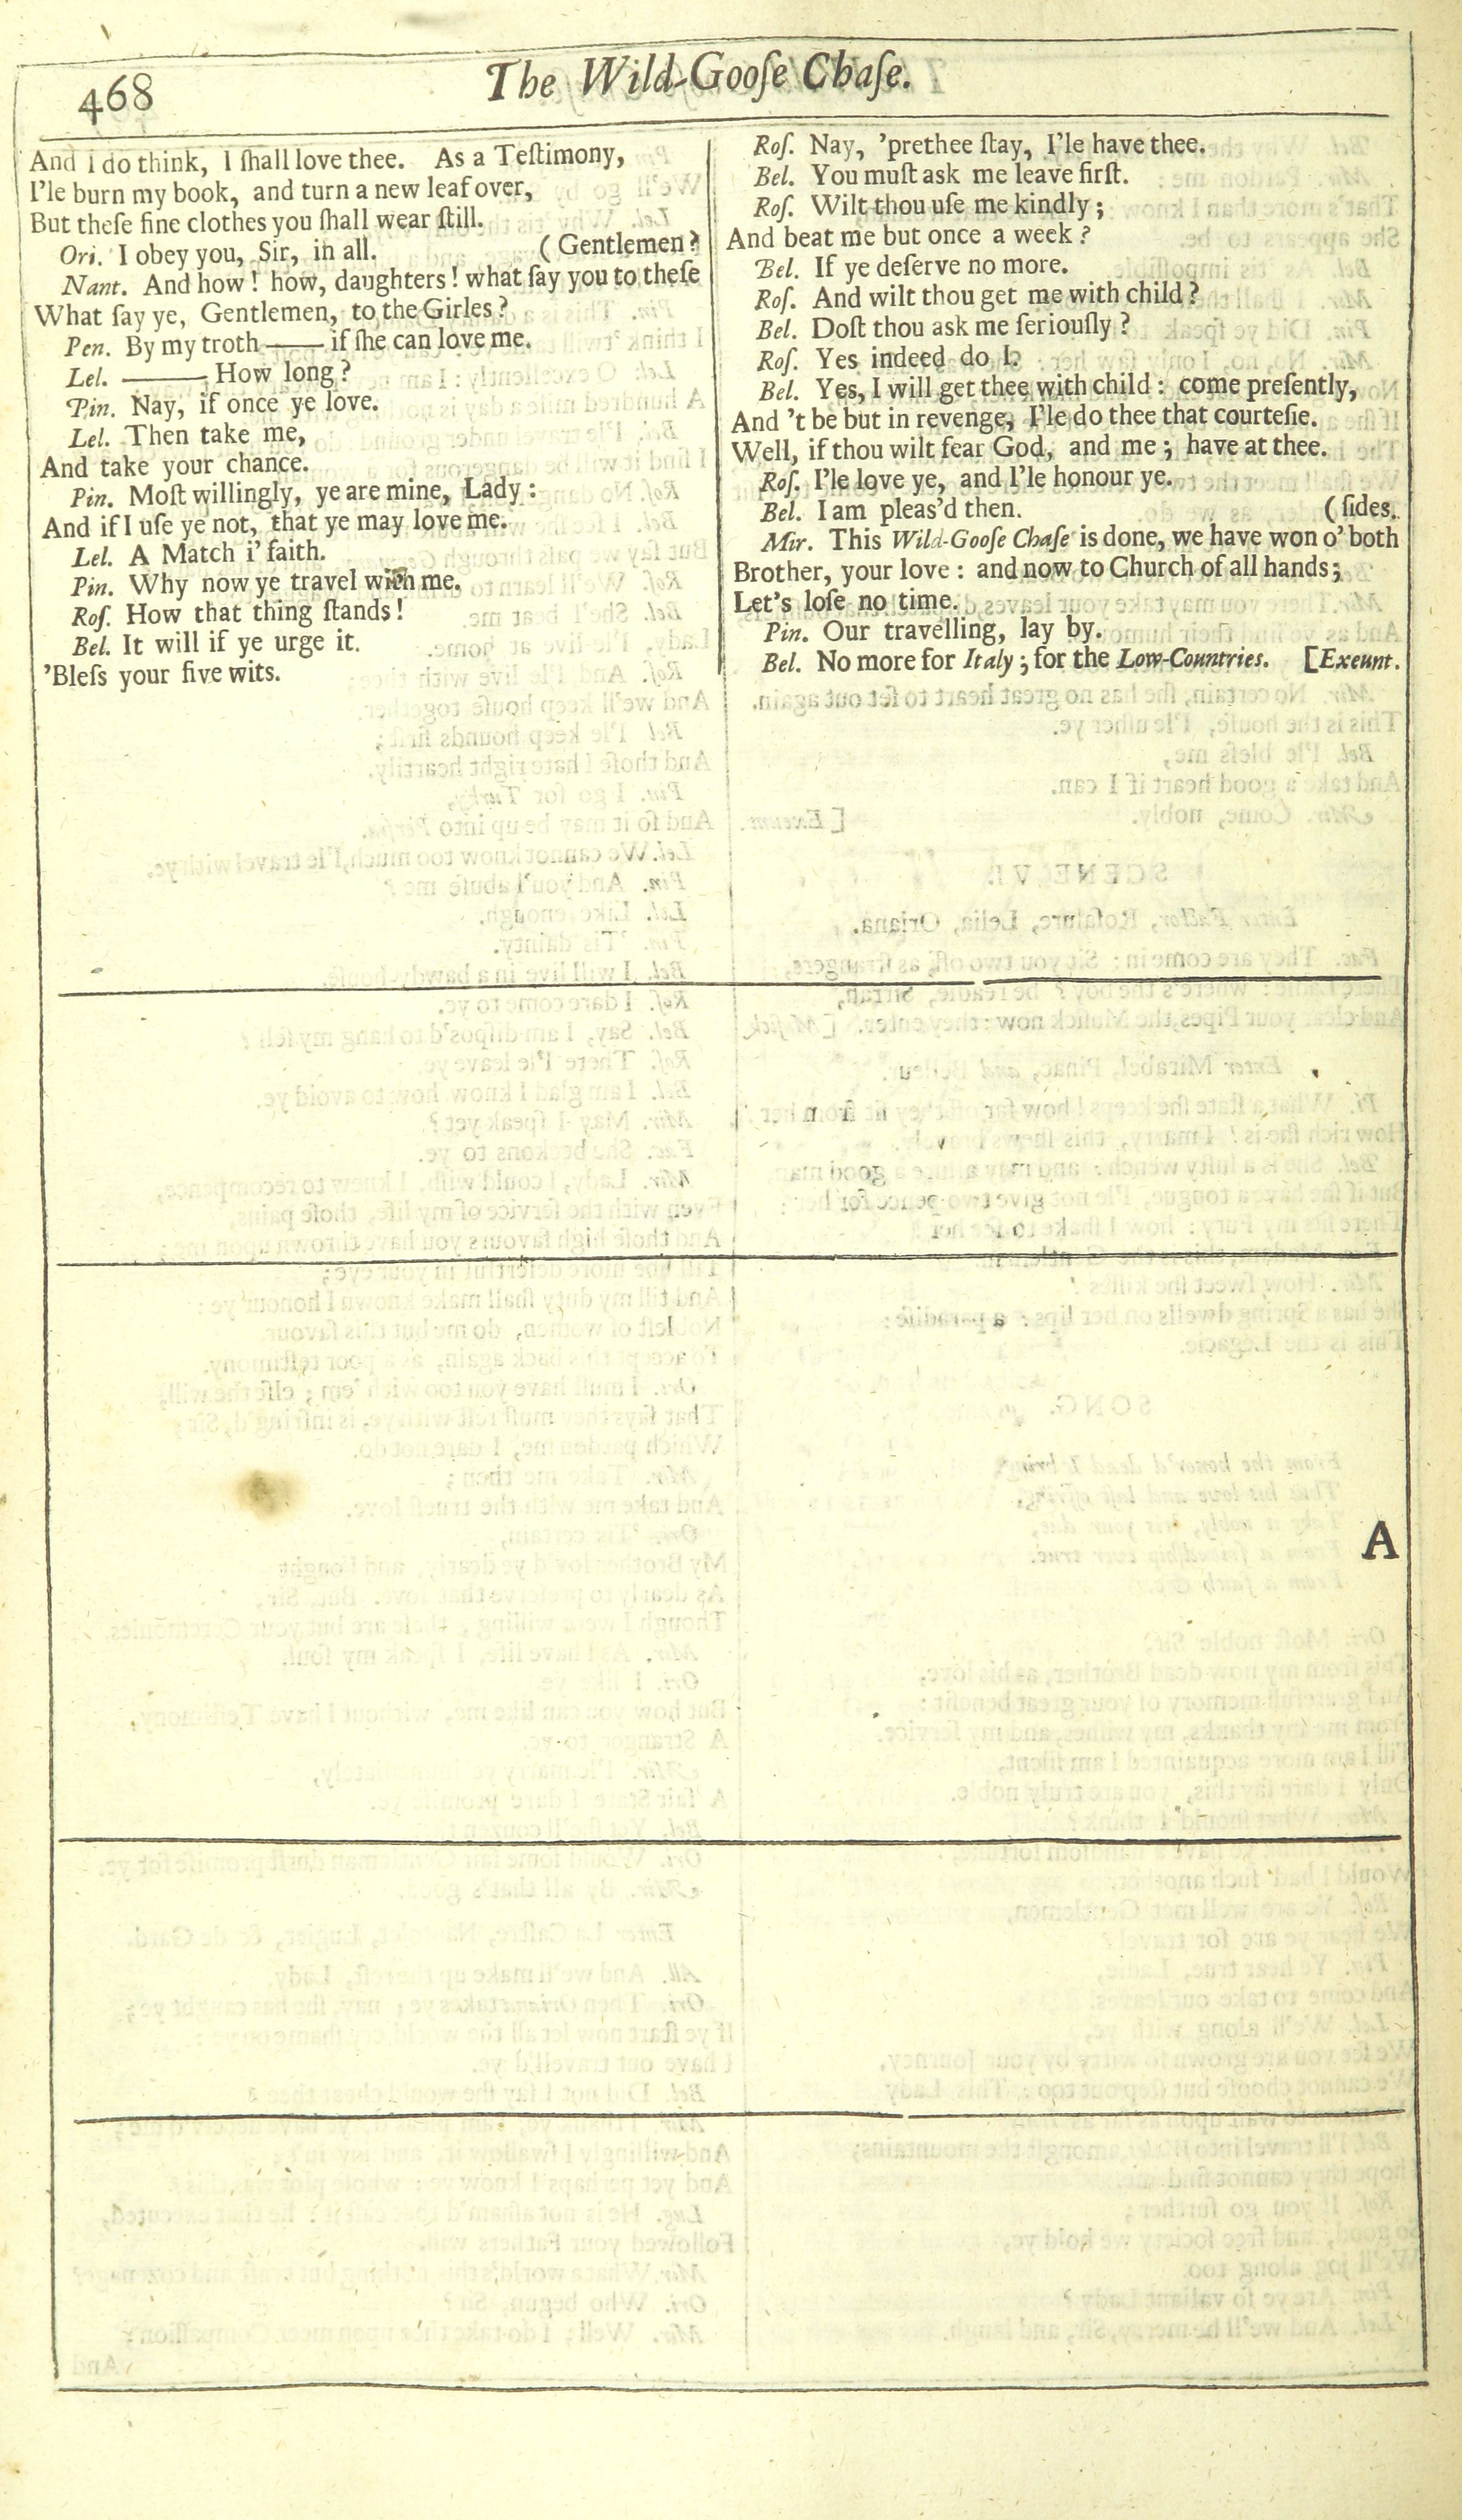 468
The Wild-Gooſe Chaſe.
And I do think, I ſhall love thee. As a Teſtimony,
I'le burn my book, and turn a new leaf over,
But theſe fine clothes you ſhall wear ſtill.
Ori. I obey you, Sir, in all. (Gentlemen?
Nant. And how! how, daughters! what ſay you to theſe
What ſay ye, Gentlemen, to the Girles?
Pen. By my troth —— if ſhe can love me.
Lel. —— How long?
Pin. Nay, if once ye love.
Lel. Then take me,
And take your chance.
Pin. Moſt willingly, ye are mine, Lady:
And if I uſe ye not, that ye may love me.
Lel. A Match i' faith.
Pin. Why now ye travel with me.
Roſ. How that thing ſtands!
Bel. It will if ye urge it.
'Bleſs your five wits.
Roſ. Nay, 'prethee ſtay, I'le have thee.
Bel. You muſt ask me leave firſt.
Roſ. Wilt thou uſe me kindly;
And beat me but once a week?
Bel. If ye deſerve no more.
Roſ. And wilt thou get me with child?
Bel. Doſt thou ask me ſeriouſly?
Roſ. Yes indeed do I.
Bel. Yes, I will get thee with child: come preſently,
And 't be but in revenge, I'le do thee that courteſie.
Well, if thou wilt fear God, and me; have at thee.
Roſ. I'le love ye, and I'le honour ye.
Bel. I am pleas'd then. (ſides.
Mir. This Wild-Gooſe Chaſe is done, we have won o' both
Brother, your love: and now to Church of all hands;
Let's loſe no time.
Pin. Our travelling, lay by.
Bel. No more for Italy; for the Low-Countries. [Exeunt.
A